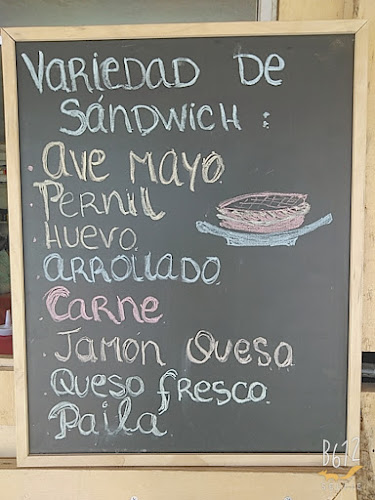 Variedad de
Sándwich :
. Ave Mayo
. Pernil
. Huevo
. Arrollado
. Carne
. Jamón Queso
. Queso fresco
. Paila
B612